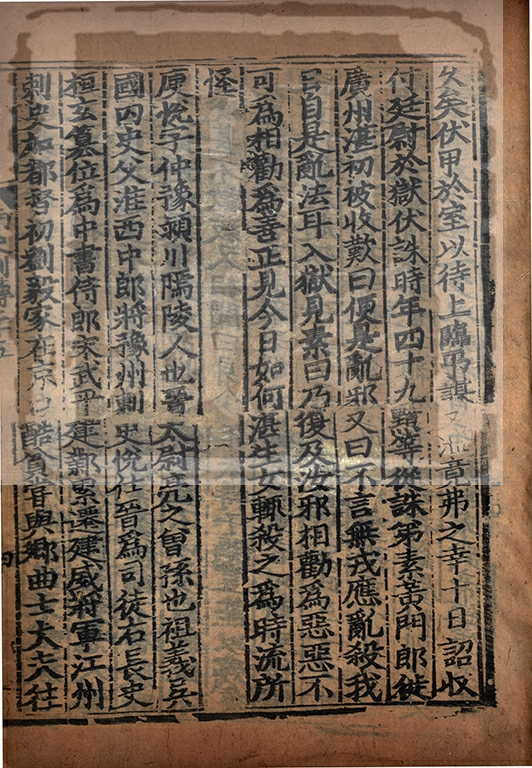 久矣伏甲於室以待上臨弔謀又泄竟弗之幸十日詔收
付廷尉於獄伏誅時年四十九黯等從誅弟素黃門郎徙
廣州湛初被收歎曰便是亂邪又曰不言無我應亂殺我
日自是亂法耳入獄見素曰乃復及汝邪相勸為惡惡不
可為相勸為善正見今日如何湛生女輒殺之為時流所
怪
庾悅字仲豫潁川鄢陵人也晉太尉亮之曾孫也祖羲吳
國內史父准西中郎將豫州刺史悅仕晉為司徒右長史
桓玄篡位為中書侍郎宋武平建鄴累遷建威將軍江州
刺史加都督初劉毅家在京口酷貧嘗與鄉曲士大夫往